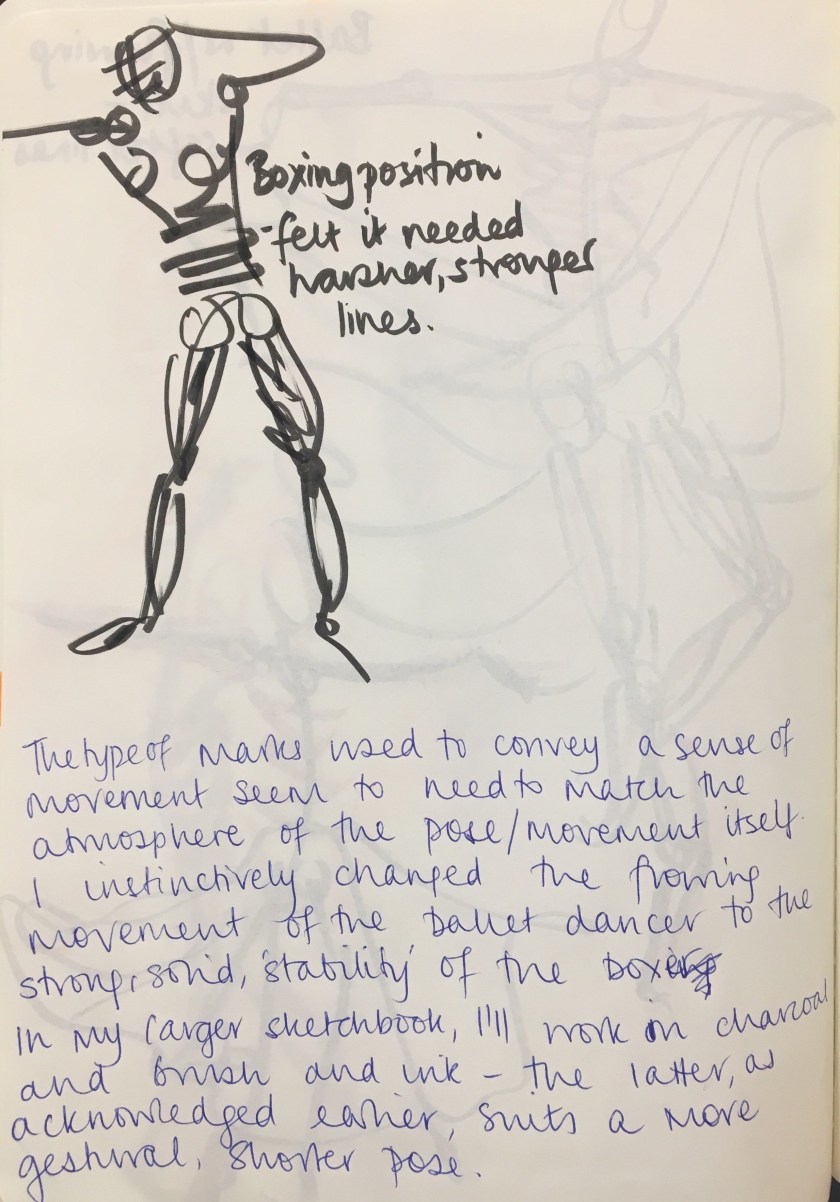 Boxing position
- felt it needed
harsher, stronger
lines.
The type of marks used to convey a sense of
movement seem to need to match the
atmosphere of the pose/movement itself.
I instinctively changed the flowing
movement of the ballet dancer to the
strong, solid, 'stability' of the boxer
In my larger sketchbook, I'll work in charcoal
and brush and ink – the latter, as
acknowledged earlier, suits a more
gestural, shorter pose.